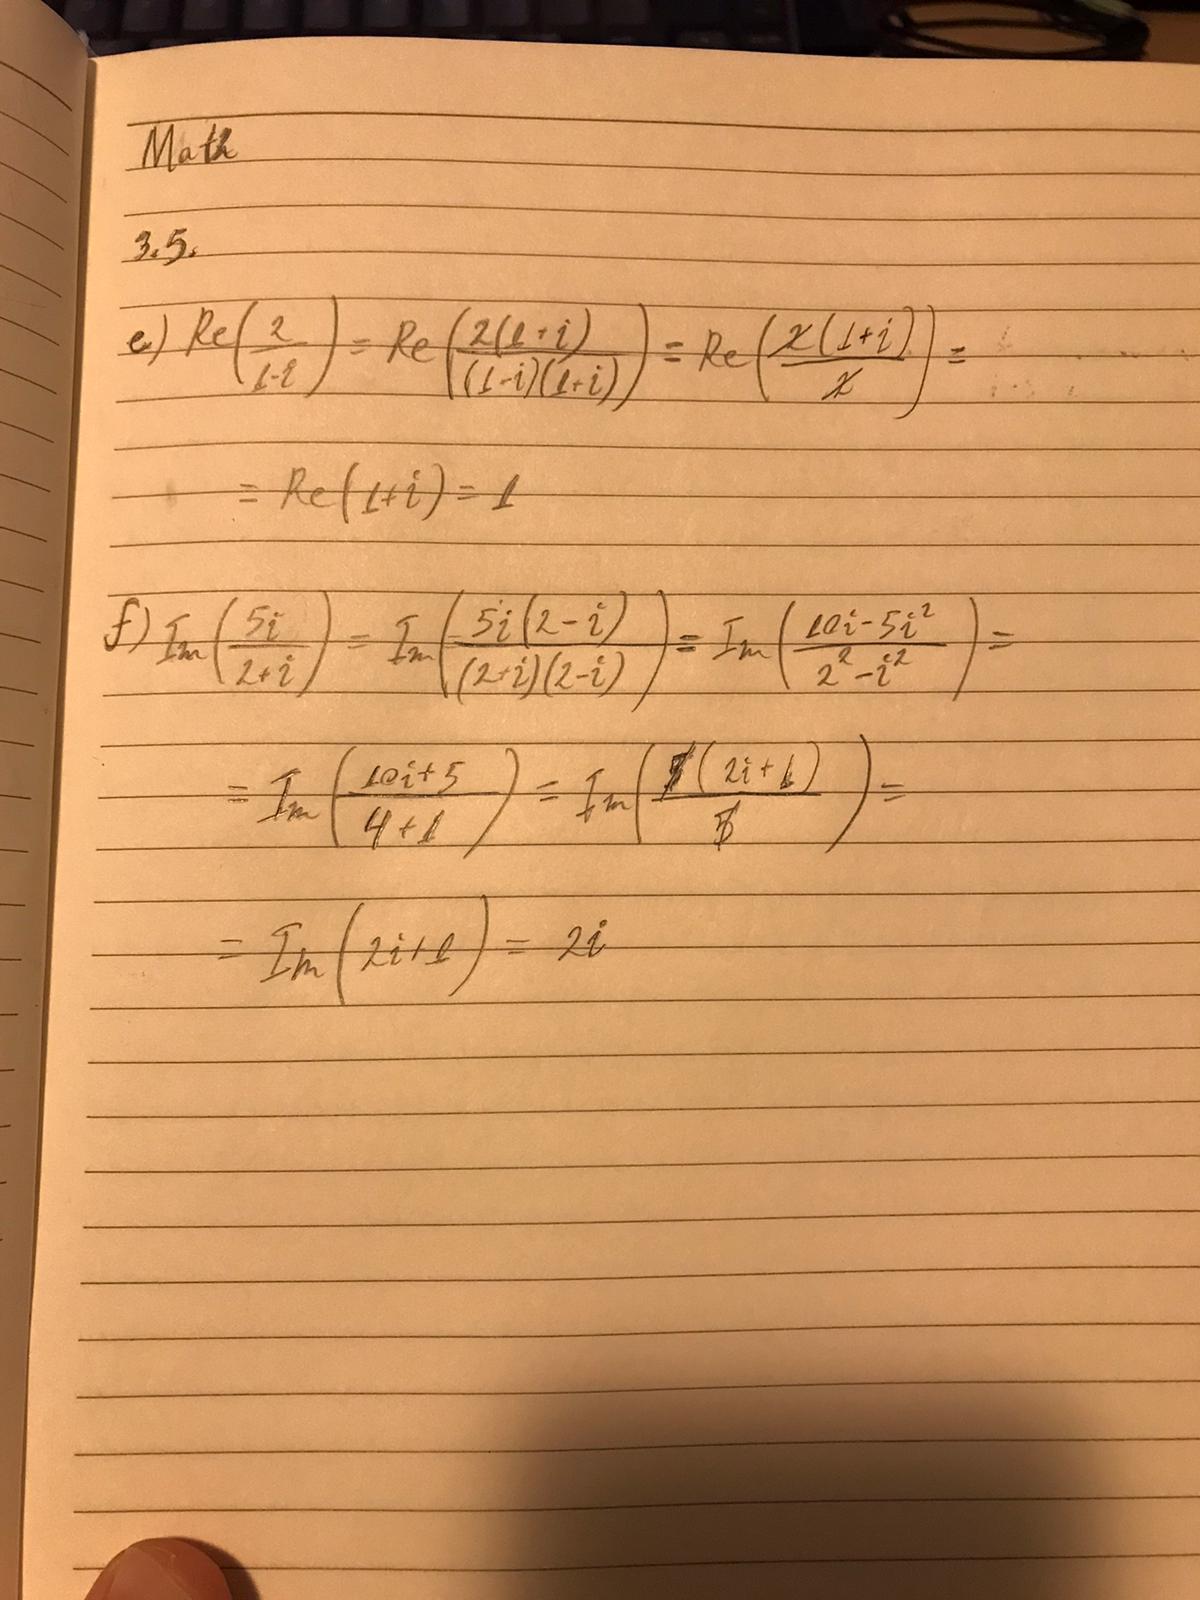 Math
3.5.
e) Re(2/(1-i)) = Re(2(1+i)/((1-i)(1+i))) = Re(2(1+i)/2) =
= Re(1+i) = 1
f) Im(5i/(2+i)) = Im(5i(2-i)/((2+i)(2-i))) = Im((10i-5i²)/(2²-i²)) =
= Im((10i+5)/(4+1)) = Im(5(2i+1)/5) =
= Im(2i+1) = 2i